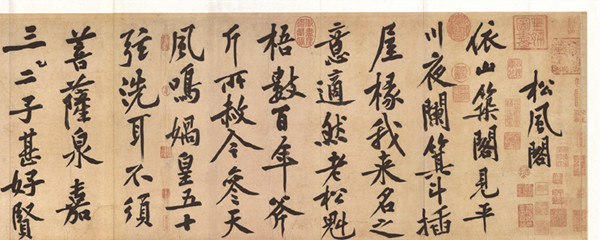 松風閣
依山築閣見平
川夜闌箕斗插
屋椽我來名之
意適然老松魁
梧數百年斧
斤所赦今參天
風鳴媧皇五十
弦洗耳不須
菩薩泉嘉
三二子甚好賢